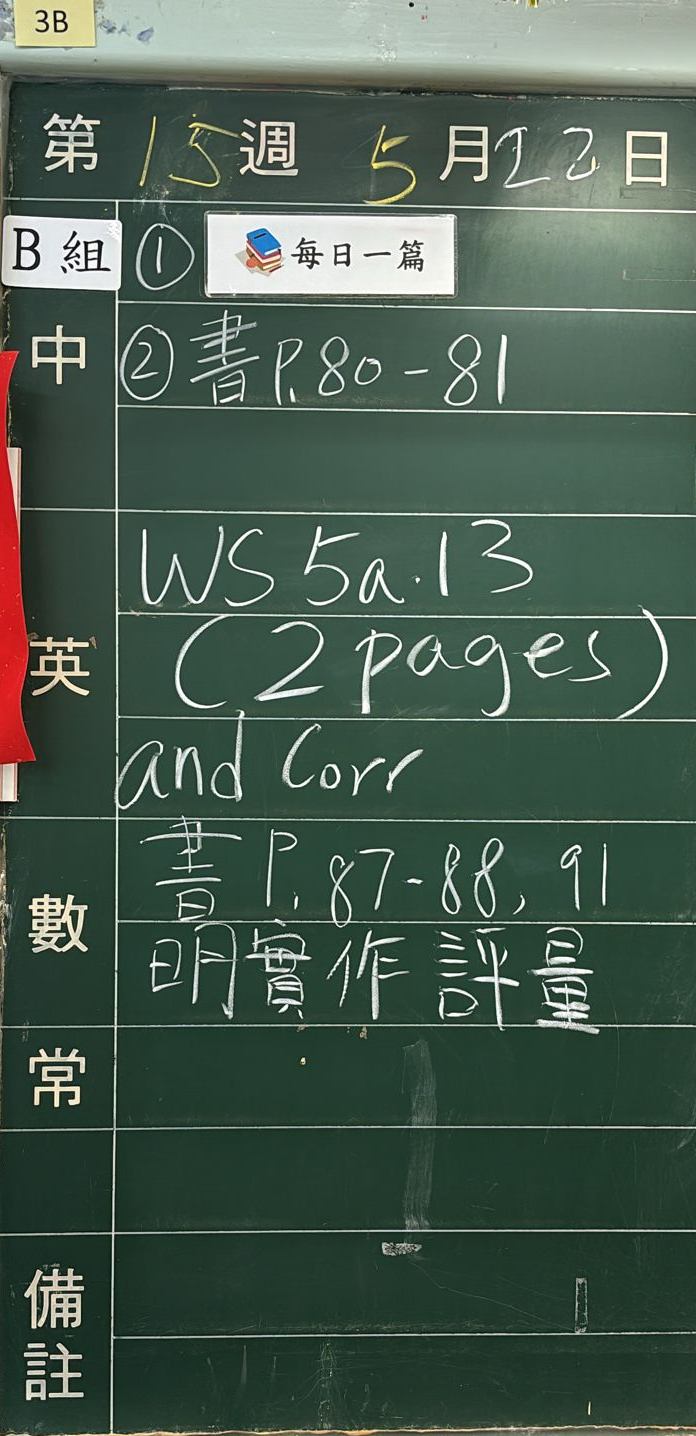 3B
第 15 週 5 月 22 日
B 組 ① 每日一篇
中 ② 書 P.80-81
WS 5a.13
英 (2 pages)
and Corr
數 書 P.87-88, 91
明實作評量
常
備註